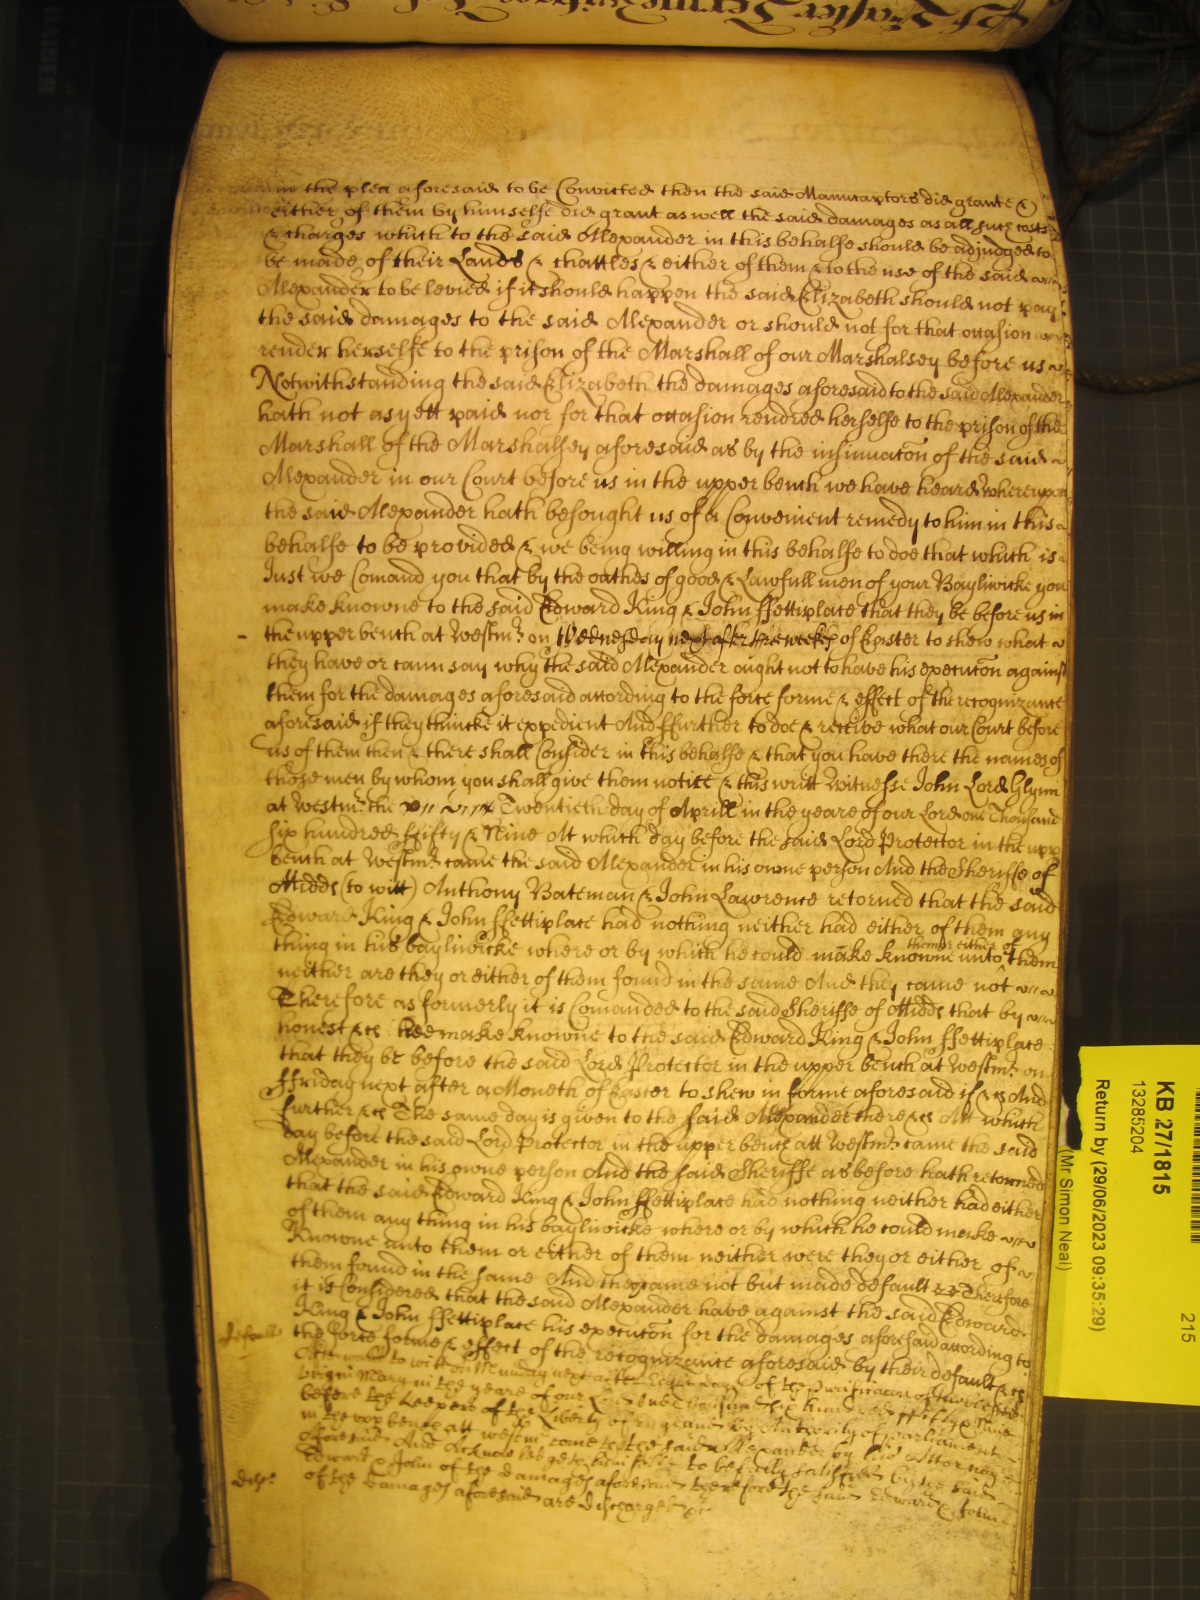 in the plea aforesaid to be Convicted then the said Manucaptors did grante &
either of them by himselfe did grant as well the said damages as all such costs
& charges which to the said Alexander in this behalfe should be adjudged to
be made of their Lands & chattles & either of them & to the use of the said
Alexander to be levied if it should happen the said Elizabeth should not pay
the said damages to the said Alexander or should not for that occasion
render herselfe to the prison of the Marshall of our Marshalsey before us
Notwithstanding the said Elizabeth the damages aforesaid to the said Alexander
hath not as yett paid nor for that occasion rendred herselfe to the prison of the
Marshall of the Marshalsey aforesaid as by the insinuacon of the said
Alexander in our Court before us in the upper bench we have heard whereupon
the said Alexander hath besought us of a Convenient remedy to him in this
behalfe to be provided & we being willing in this behalfe to doe that which is
Just we Comand you that by the oathes of good & Lawfull men of your Bayliwicke you
make knowne to the said Edward King & John ffettiplace that they be before us in
the upper bench at Westmr on Wednesday next after three weekes of Easter to shew what
they have or cann say why the said Alexander ought not to have his execucon against
them for the damages aforesaid according to the force forme & effect of the recognizance
aforesaid if they thincke it expedient And ffurther to doe & receive what our Court before
us of them then & there shall Consider in this behalfe & that you have there the names of
those men by whom you shall give them notice & this writt Witnesse John Lord Glynn
at Westmr the Twentieth day of Aprill in the yeare of our Lord one Thousand
six hundred ffifty & Nine At which day before the said Lord Protector in the upp
bench at Westmr came the said Alexander in his owne person And the Sheriffe of
Midds (to witt) Anthony Bateman & John Lawrence retorned that the said
Edward King & John ffettiplace had nothing neither had either of them any
thing in his bayliwicke where or by which he could make knowne unto them
them or either of
neither are they or either of them found in the same And they came not
Therefore as formerly it is Comanded to the said Sheriffe of Midds that by
honest &c hee make knowne to the said Edward King & John ffettiplace
that they be before the said Lord Protector in the upper bench at Westmr on
ffriday next after a Moneth of Easter to shew in forme aforesaid if &c And
further &c The same day is given to the said Alexander there &c Att which
day before the said Lord Protector in the upper bench att Westmr came the said
Alexander in his owne person And the said Sheriffe as before hath retorned
that the said Edward King & John ffettiplace had nothing neither had either
of them any thing in his bayliwicke where or by which he could make
knowne unto them or either of them neither were they or either of
them found in the same And they came not but made default Therefore
it is Considered that the said Alexander have against the said Edward
King & John ffettiplace his execucon for the damages aforesaid according to
the force forme & effect of the recognizance aforesaid by their default &c
to witt on Munday next after Eight dayes of the Purificacon of
virgin Mary in the yeare of our Lord One Thousand six hundred ffifty & Nine
before the Keepers of the Liberty of England by Authority of Parliament
in the upp bench att Westmr came the said Alexander by his Attorney
aforesaid And Acknowledgeth himselfe to be fully satisfied by the said
Edward & John of the Damages aforesaid therefore the said Edward & John
of the Damages aforesaid are discharged &c
KB 27/1815
13285204
Return by (29/06/2023 09:35:29)
(Mr Simon Neal)
215